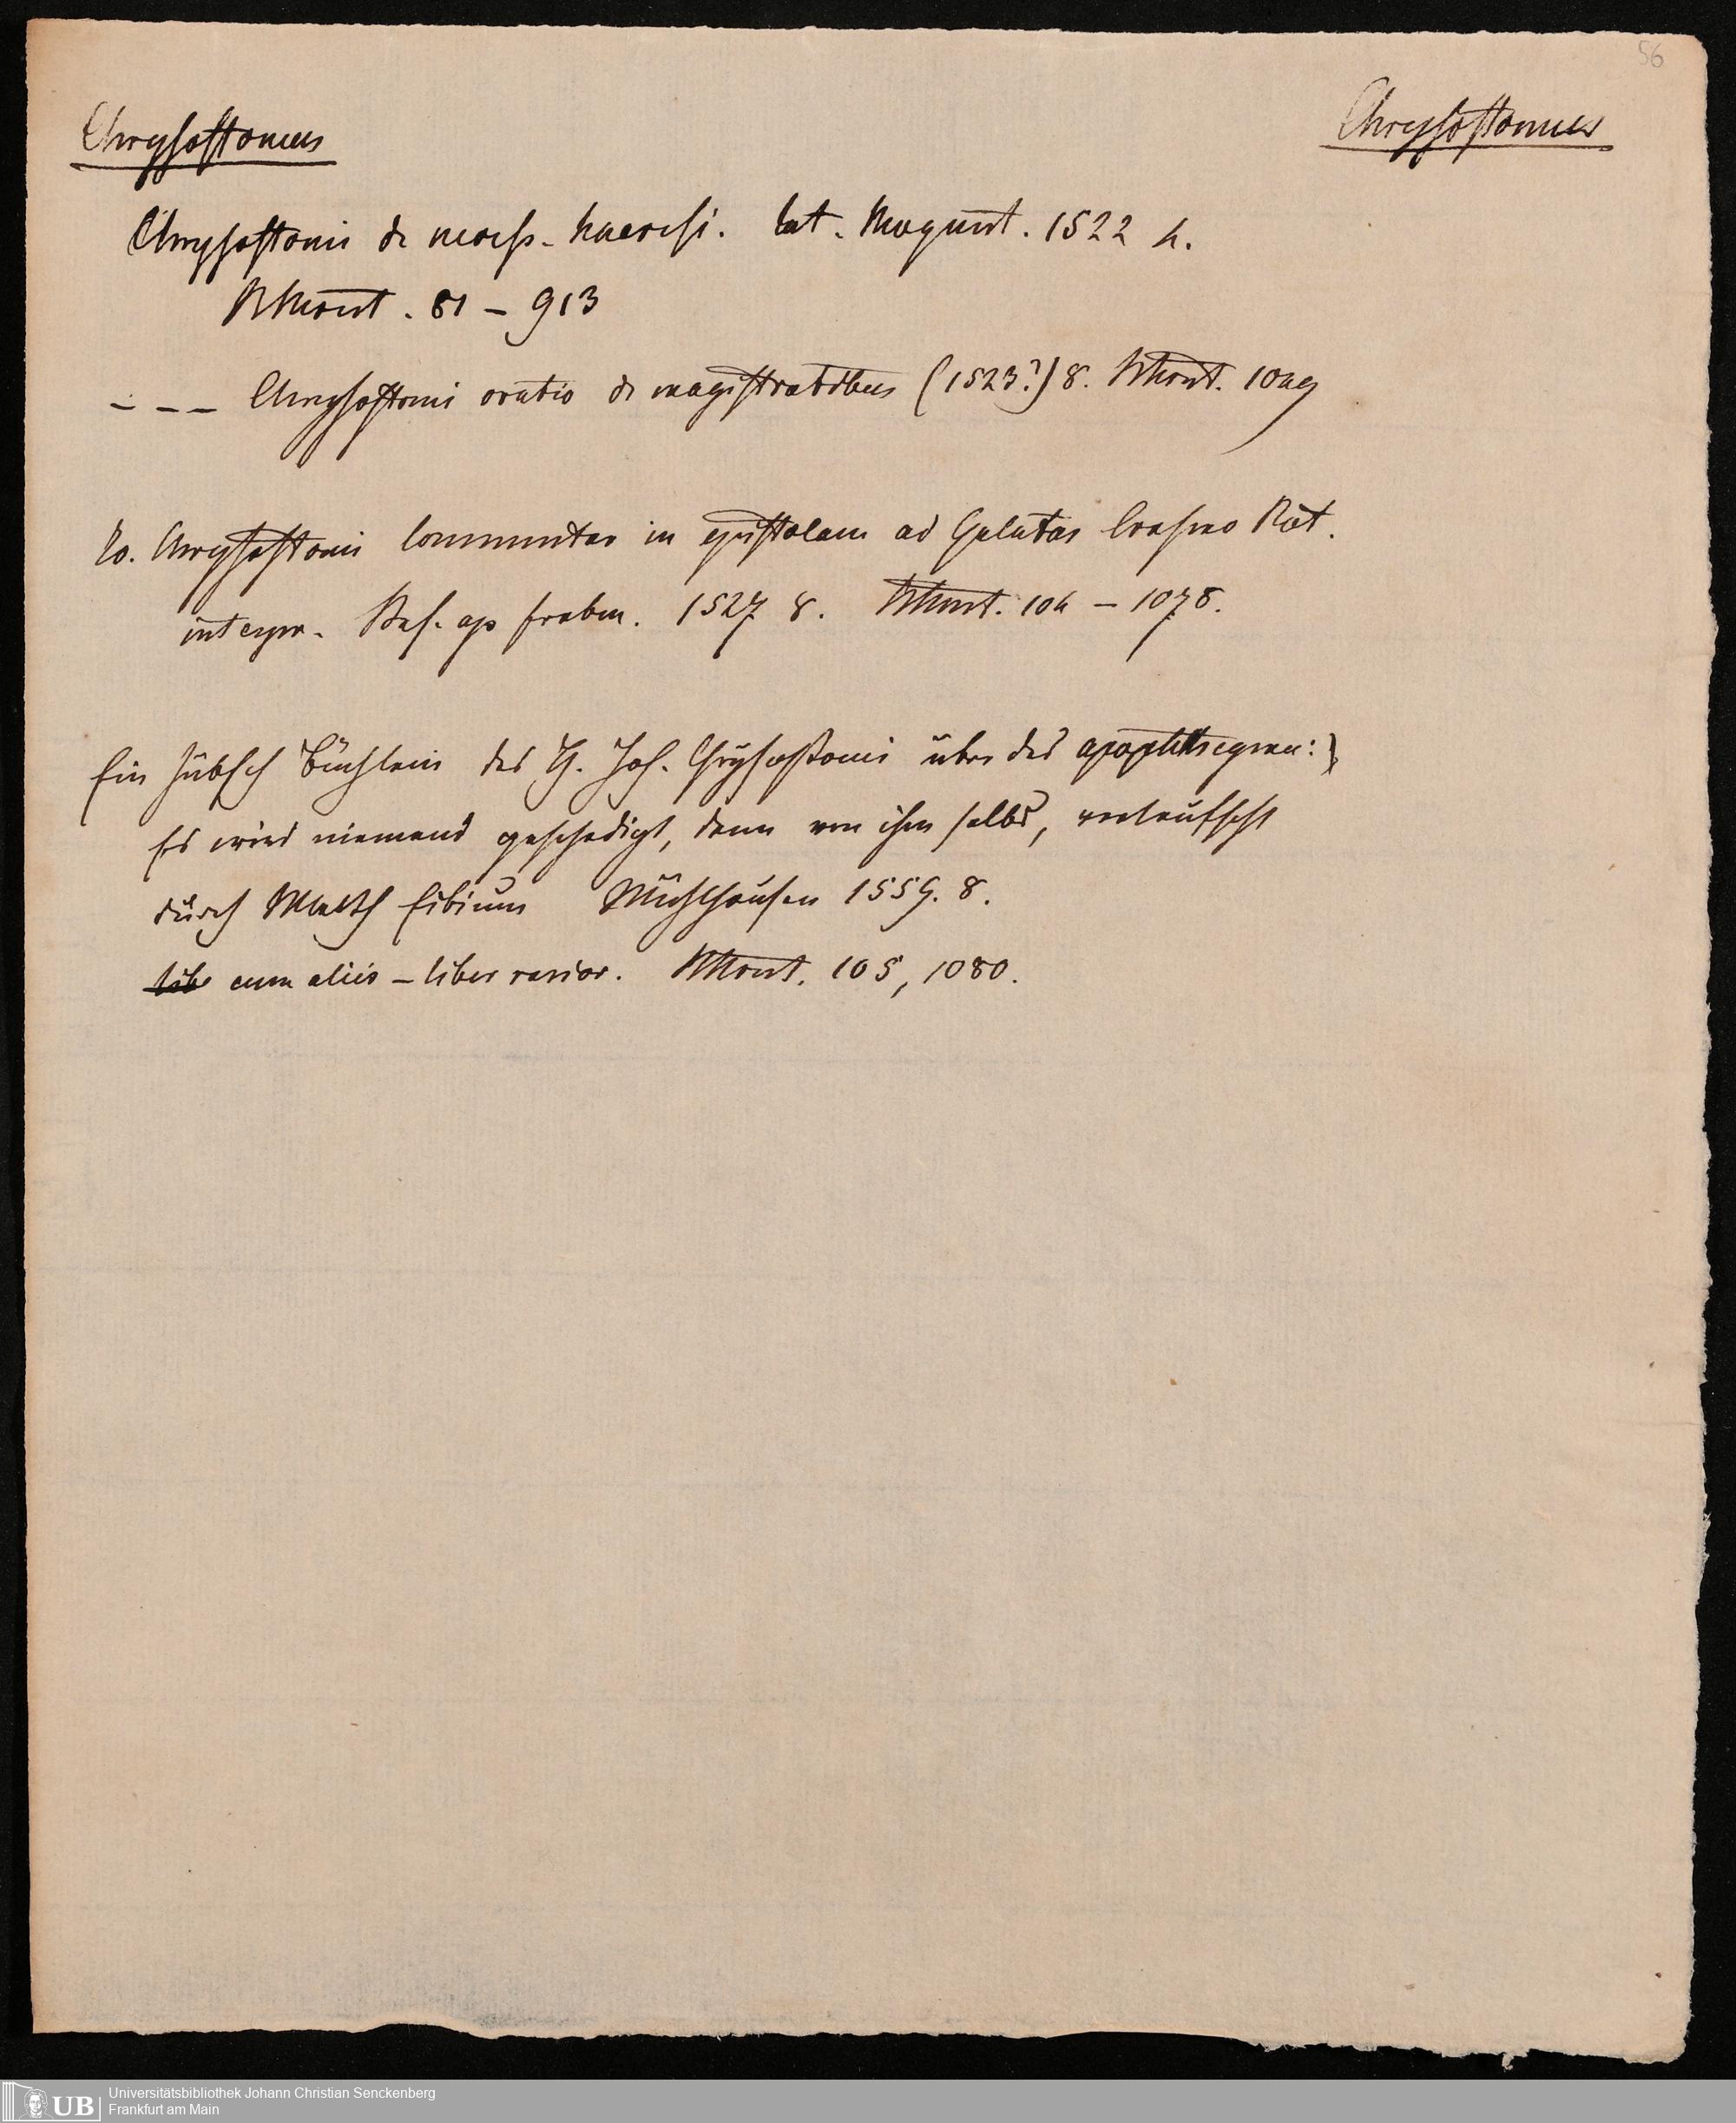 56
Chrysostomus Chrysostomus
Chrysostomi de necess. haeresi. lat. Mogunt. 1522 4.
81 – 913
– – – Chrysostomi oratio de magistratibus (1523?) 8.
Io. Chrysostomi Commentar in epistolam ad Galatas Erasmo Rot.
interpr. Bas. ap froben. 1527 8. 104 – 1078.
Ein hübsch Büchlein des H. Joh. Chrysostomi über das apophthegma:
Es wird niemand geschedigt, denn von ihm selbs, verteutscht
durch Matth Eibium Mühlhausen 1559. 8.
cum aliis – liber rarior. 105, 1080.
UB Universitätsbibliothek Johann Christian Senckenberg
Frankfurt am Main